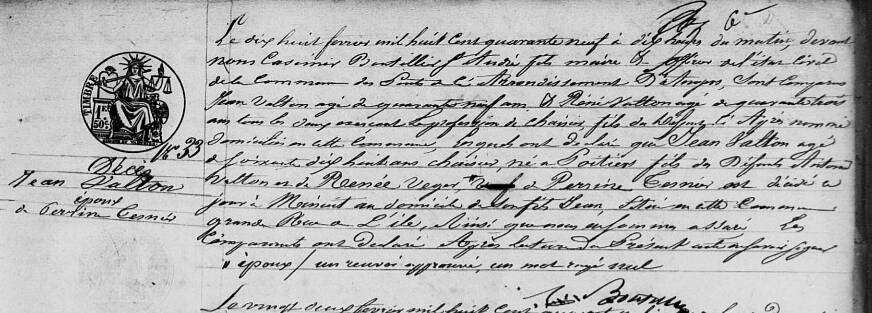 6e
Le dix huit fevrier mil huit Cent quarante neuf à dix heures du matin, devant
nous Casimir fils maire & officier de l'état Civil
de la Commune des Ponts de Cé Arrondissement D'Angers, Sont Comparus
Jean Valton agé de quarante neuf ans & René Valton agé de quarante trois
ans tous les deux exerçant la profession de chaisier, fils du Défunt Ci Après nommé
domiciliés en cette Commune, lesquels ont déclaré que Jean Valton agé
de soixante dix huit ans chaisier, né à Poitiers fils des Défunts
Valton et de Renée Veger, de Perrine Cesner est décédé ce
jour à Minuit au domicile de son fils Jean, Situé en cette Commune
grande Rue de L'île, Ainsi que nous assuré Les
Comparants ont déclaré Après lecture du Présent acte
époux / un renvoi approuvé, un mot rayé nul
TIMBRE
50c
No 33
Décès
Jean Valton
époux
de Perrine Cesner
Le vingt deux fevrier mil huit Cent